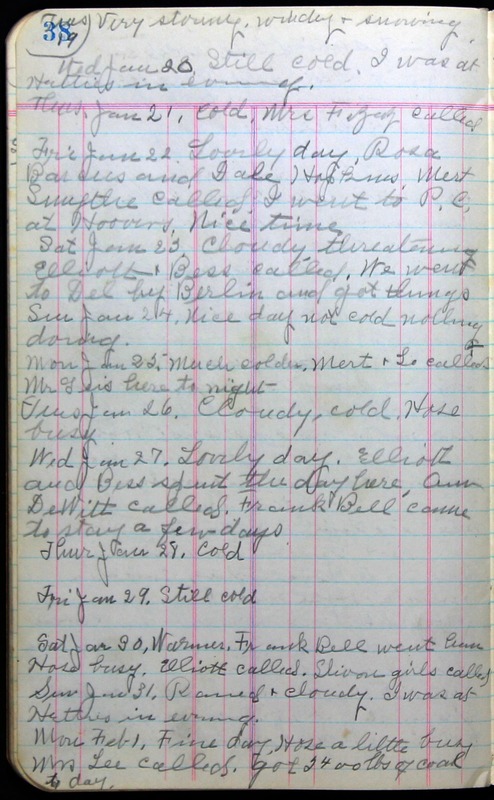 38
Tues 19 Very stormy, windy + snowing
Wed Jan 20 Still cold. I was at
Hatties in evening.
Thus, Jan 21, Cold, Mrs called
Fri Jan 22. Lovely day, Rosa
and Mert
Smythe called I went to P. C,
at Hoovers, Nice time
Sat Jan 23 Cloudy threatning
Elliott + Bess called, We went
to Del by Berlin and got things
Sun Jan 24. Nice day not cold nothing
doing.
Mon Jan 25, Much colder. Mert + Lo called
Mr is here to night
Tues Jan 26. Cloudy, cold. Hose
busy
Wed Jan 27. Lovely day. Elliott
and Bess spent the day here, Ann
DeWitt called. Frank Bell came
to stay a few days
Thur Jan 28. Cold
Fri Jan 29. Still cold
Sat Jan 30, Warmer. Frank Bell went
Hose busy. Elliott called. girls called
Sun Jan 31, Rained + cloudy. I was at
Hatties in evening.
Mon Feb 1, Fine day, Hose a little busy
Mrs Lee called. got 2400 lbs of coal
to day.